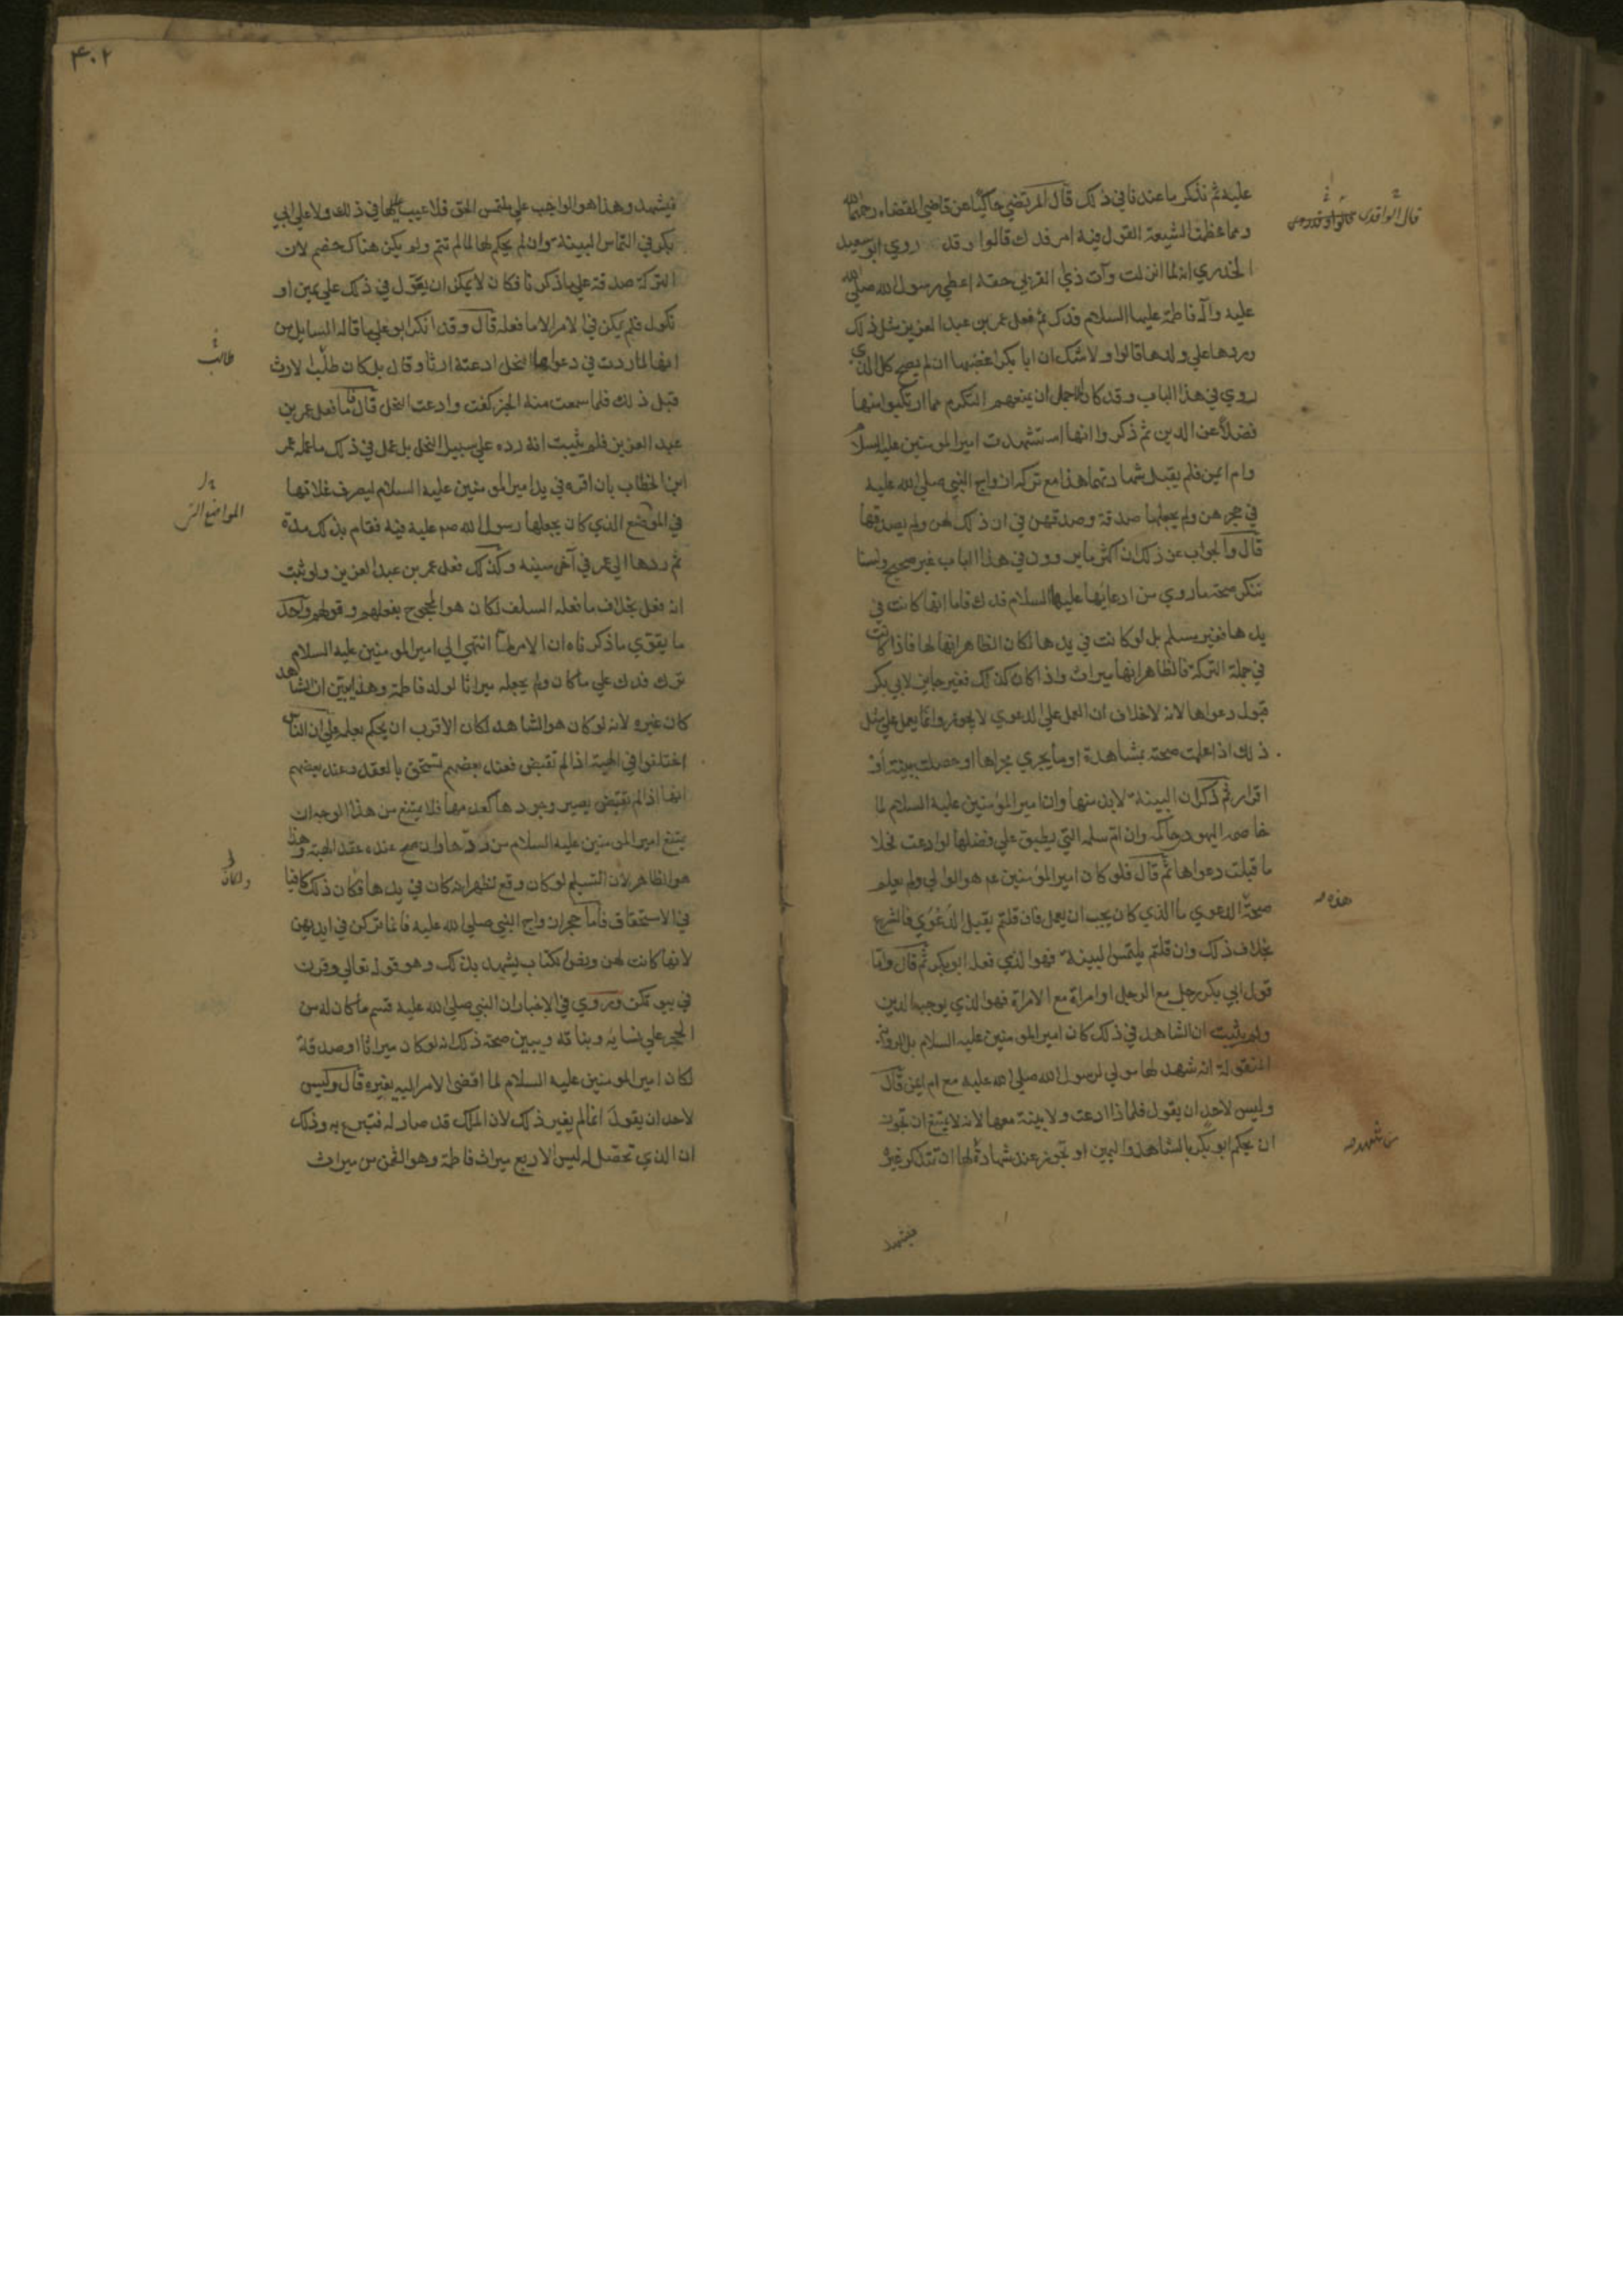 عليه ثم نذكر ما عندنا في ذلك قال المرتضي حاكيا عن قاضي القضاه رحمهما الله
ومما عظمت الشيعة القول فيه امر فدك قالوا وقد روي ابو سعيد
الخدري انه لما انزلت وآت ذي القربي حقه اعطي رسول الله صلي الله
عليه وآله فاطمة عليها السلام فدك ثم فعل عمر بن عبد العزيز مثل ذلك
وردها علي ولدها قالوا ولا شك ان ابا بكر اغضبها ان لم يصح كل الذي
روي في هذا الباب وقد كان الاجمل ان يمنعهم التكرم مما ارتكبوا منها
فضلا عن الدين ثم ذكروا انها استشهدت امير المومنين عليه السلام
وام ايمن فلم يقبل شهادتهما هذا مع تركه ازواج النبي صلي الله عليه
في حجرهن ولم يجعلها صدقة وصدقهن في ان ذلك لهن ولم يصدقها
قال والجواب عن ذلك ان اكثر ما يروون في هذا الباب غير صحيح ولسنا
ننكر صحة ما روي من ادعائها عليها السلام فدك فاما انها كانت في
يدها فغير مسلم بل لو كانت في يدها لكان الظاهر انها لها فاذا كانت
في جملة التركة فالظاهر انها ميراث واذا كان كذلك فغير جايز لابي بكر
قبول دعواها لانه لا خلاف ان العمل علي الدعوي لا يجوز وانما يعمل علي مثل
ذلك اذا علمت صحته بمشاهدة او ما يجري مجراها او حصلت بينة او
اقرار ثم ذكر ان البينة لا بد منها وان امير المؤمنين عليه السلام لما
خاصمه اليهودي حاكمه وان ام سلمه التي يطبق علي فضلها لو ادعت نحلا
ما قبلت دعواها ثم قال فلو كان امير المؤمنين عم هو الوالي ولم يعلم
صحة الدعوي ما الذي كان يجب ان يعمل فان قلتم يقبل الدعوي فالشرع
بخلاف ذلك وان قلتم يلتمس البينة فهو الذي فعله ابو بكر ثم قال واما
قول ابي بكر رجل مع الرجل او امراة مع الامراة فهو الذي يوجبه الدين
ولم يثبت ان الشاهد في ذلك كان امير المومنين عليه السلام بل الرواية
المنقولة انه شهد لها مولي لرسول الله صلي الله عليه مع ام ايمن قال
وليس لاحد ان يقول فلماذا ادعت ولا بينة معها لانه لا يمتنع ان تجوز
ان يحكم ابو بكر بالشاهد واليمين او تجوز عند شهادة لها ان تتذكر غيره
فيشهد
قال الواقدي
هذه
من شهد
٤٠٢
فيشهد وهذا هو الواجب علي ملتمس الحق فلا عيب عليها في ذلك ولا علي ابي
بكر في التماس البينة وان لم يحكم لها لما لم تتم ولم يكن هناك خصم لان
التركة صدقة علي ما ذكرنا فكان لا يمكن ان يعول في ذلك علي يمين او
نكول فلم يكن في الامر الا ما فعله قال وقد انكر ابو علي ما قاله السايل من
انها لما ردت في دعوي النحل ادعته ارثا وقال بل كان طلب الارث
قبل ذلك فلما سمعت منه الخبر كفت وادعت النحل قال فاما فعل عمر بن
عبد العزيز فلم يثبت انه رده علي سبيل النحل بل عمل في ذلك ما عمله عمر
ابن الخطاب بان اقره في يد امير المومنين عليه السلام ليصرف غلاتها
في الموضع الذي كان يجعلها رسول الله صم عليه فيه فقام بذلك مدة
ثم ردها الي عمر في آخر سنيه وكذلك فعل عمر بن عبد العزيز ولو ثبت
انه فعل بخلاف ما فعله السلف لكان هو المحجوج بفعلهم وقولهم واحد
ما يقوي ما ذكرناه ان الامر لما انتهي الي امير المومنين عليه السلام
ترك فدك علي ما كان ولم يجعله ميراثا لولد فاطمة وهذا يبين ان الشاهد
كان غيره لانه لو كان هو الشاهد لكان الاقرب ان يحكم بعلمه علي ان الناس
اختلفوا في الهبة اذا لم تقبض فعند بعضهم تستحق بالعقد وعند بعضهم
انها اذا لم تقبض يصير وجودها كعدمها فلا يمتنع من هذا الوجه ان
يمتنع امير المومنين عليه السلام من ردها وان صح عنده عقد الهبة وهذا
هو الظاهر لان التسليم لو كان وقع لظهر انه كان في يدها فكان ذلك كافيا
في الاستحقاق فاما حجر ازواج النبي صلي الله عليه فانما تركن في ايديهن
لانها كانت لهن ونص الكتاب يشهد بذلك وهو قوله تعالي وقرن
في بيوتكن وروي في الاخبار ان النبي صلي الله عليه قسم ما كان له من
الحجر علي نسايه وبناته ويبين صحة ذلك انه لو كان ميراثا او صدقة
لكان امير المومنين عليه السلام لما افضي الامر اليه يغيره قال وليس
لاحد ان يقول انما لم يغير ذلك لان الملك قد صار له فتبرع به وذلك
ان الذي تحصل له ليس الا ربع ميراث فاطمة وهو الثمن من ميراث
طالب
المواضع التي
ولكان